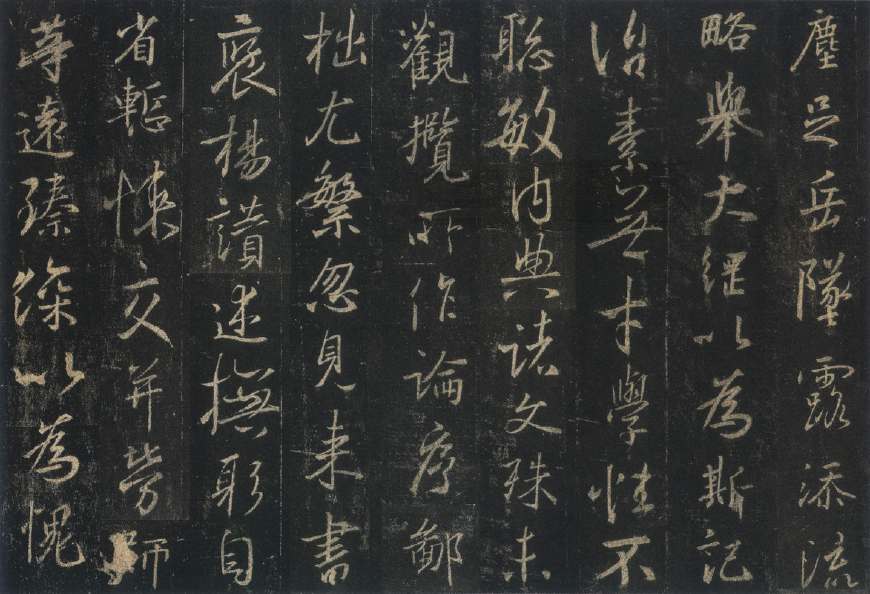 塵足岳墜露添流
略舉大綱以為斯記
治素無才學性不
聡敏內典諸文殊未
觀攬所作論序鄙
拙尤繁忽見来書
褒揚讃述撫躬自
省輕悚交并勞師
等遠臻深以為愧